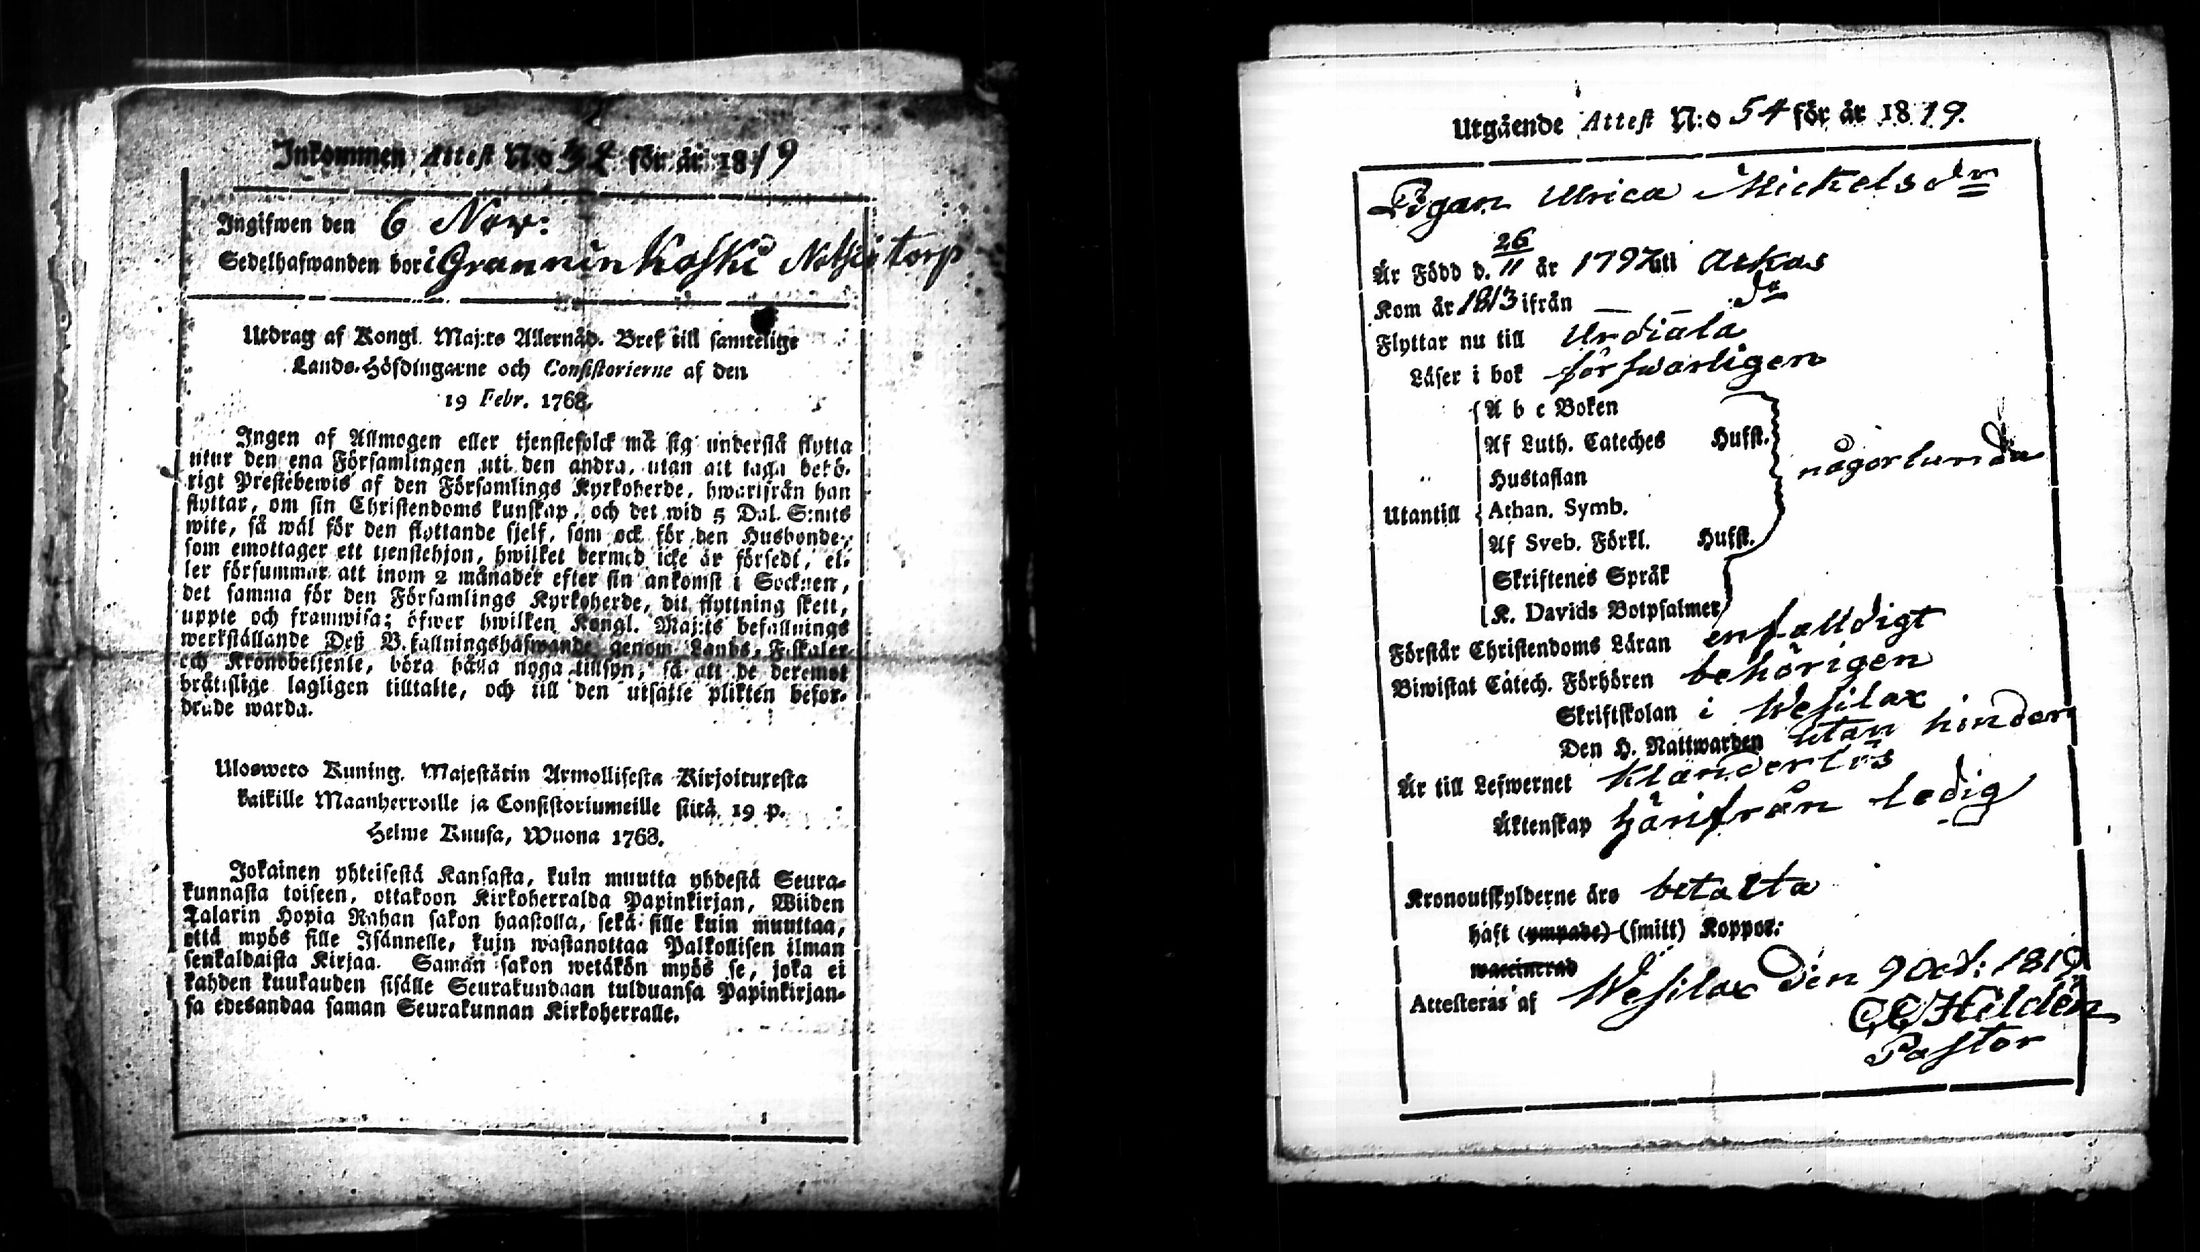 Inkommen Attest N:o 54 för år 1819
Ingifwen den 6 Nov:
Sedelhafwanden bor i Granninkoski torp
Utdrag af Kongl. Maj:ts Allernåd. Bref till samtelige
Lands-Höfdingarne och Consistorierne af den
19 Febr. 1768.
Ingen af Allmogen eller tjenstefolck må sig understå flytta
utur den ena Församlingen uti den andra, utan att taga behö-
rigt Prestebewis af den Församlings Kyrkoherde, hwarifrån han
flyttar, om sin Christendoms kunskap, och det wid 5 Dal. S:mts
wite, så wäl för den flyttande sjelf, som ock för den Husbonde,
som emottager ett tjenstehjon, hwilket dermed icke är försedt, el-
ler försummar att inom 2 månader efter sin ankomst i Socknen,
det samma för den Församlings Kyrkoherde, dit flyttning skett,
uppte och framwisa; öfwer hwilken Kongl. Maj:ts befallnings
werkställande Deß B.fallningshafwande genom Lands-Fiskaler
och Kronobetjente, böra hålla noga tillsyn, så att de deremot
bråttslige lagligen tilltalte, och till den utsatte plikten befor-
drade warda.
Ulosweto Kuning. Majestätin Armollisesta Kirjoituxesta
kaikille Maanherroille ja Consistoriumeille siitä 19 p.
Helme Kuusa, Wuona 1768.
Jokainen yhteisestä Kansasta, kuin muutta yhdestä Seura-
kunnasta toiseen, ottakoon Kirkoherralda Papinkirjan, Wiiden
Talarin Hopia Rahan sakon haastolla, sekä sille kuin muuttaa,
että myös sille Isännelle, kuin wastanottaa Palkollisen ilman
senkaldaista Kirjaa. Saman sakon wetäkön myös se, joka ei
kahden kuukauden sisälle Seurakundaan tulduansa Papinkirjan-
sa edesandaa saman Seurakunnan Kirkoherralle.
Utgående Attest N:o 54 för år 1819.
Pigan Ulrica Mickelsdr
Är Född d. 26/11 år 1797 uti Arkas
Kom år 1813 ifrån do
Flyttar nu till Urdiala
Läser i bok förswarligen
A b c Boken
Af Luth. Cateches Hufst.
Hustaflan
någorlunda
Utantill Athan. Symb.
Af Sveb. Förkl. Hufst.
Skriftenes Språk
K. Davids Botpsalmer
Förstår Christendoms Läran enfalldigt
Biwistat Catech. Förhören behörigen
Skriftskolan i Wesilax
Den H. Nattwarden utan hinder
Är till Lefwernet klanderlös
Äktenskap härifrån ledig
Kronoutskylderne äro betalta
haft (ympade) (smitt) Koppor.
waccinerad
Attesteras af Wesilax den 9 Oct: 1819
CC Hildén
Pastor